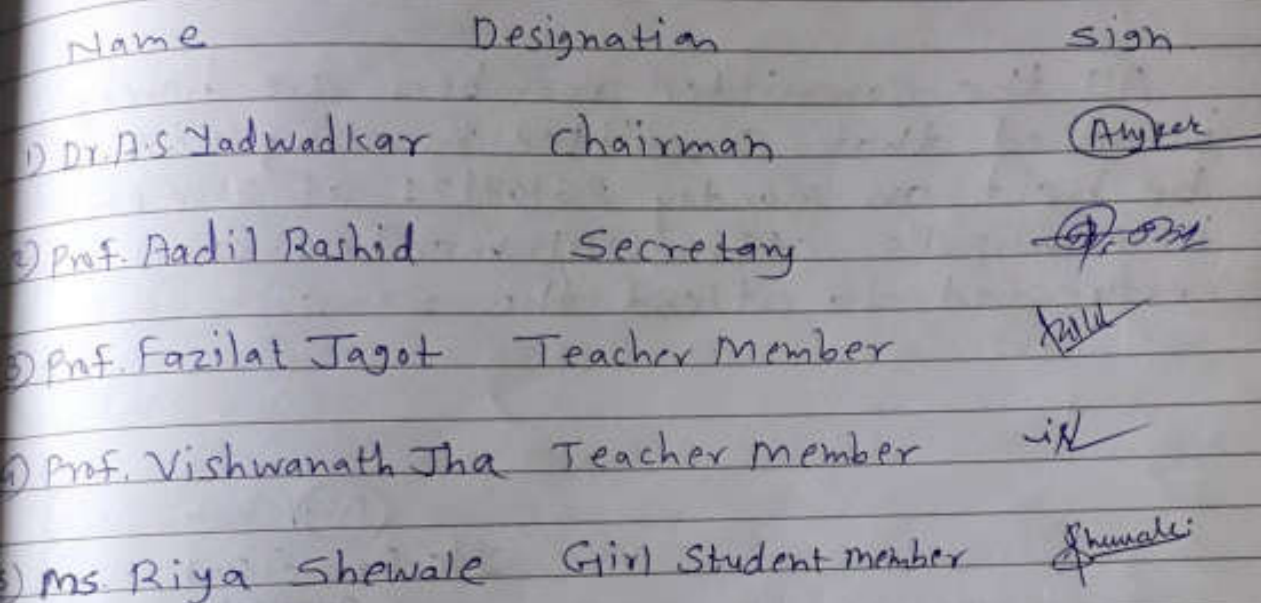 Name Designation Sign
1) Dr. A.S Yadwadkar Chairman
2) Prof. Aadil Rashid Secretary
3) Prof. Fazilat Jagot Teacher Member
4) Prof. Vishwanath Jha Teacher member
5) Ms. Riya Shewale Girl Student member Shewale